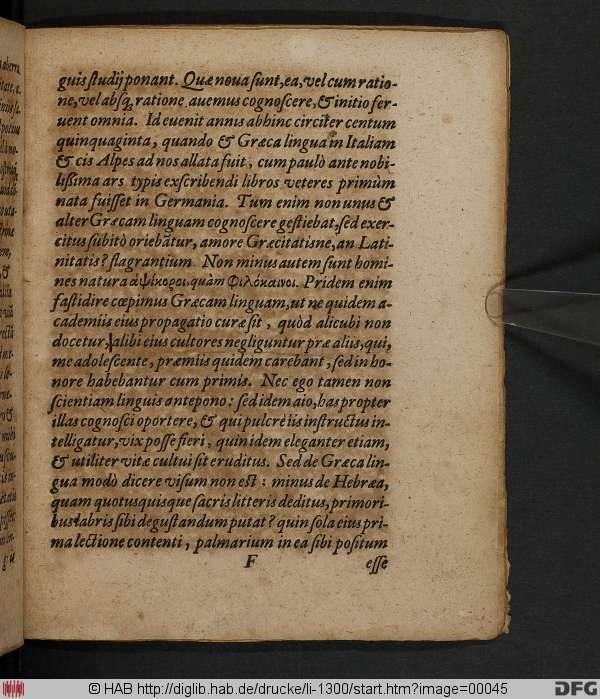 guis studij ponant. Quæ noua sunt, ea, vel cum ratio-
ne, vel absq; ratione auemus cognoscere, & initio fer-
uent omnia. Id euenit annis abhinc circiter centum
quinquaginta, quando & Græca lingua in Italiam
& cis Alpes ad nos allata fuit, cum paulò ante nobi-
lissima ars typis exscribendi libros veteres primùm
nata fuisset in Germania. Tum enim non unus &
alter Græcam linguam cognoscere gestiebat, sed exer-
citus subitò oriebãtur, amore Græcitatisne, an Lati-
nitatis? flagrantium. Non minus autem sunt homi-
nes natura ἁψίκοροι quàm Φιλόκαινοι. Pridem enim
fastidire cœpimus Græcam linguam, ut ne quidem a-
cademiis eius propagatio curæ sit, quòd alicubi non
docetur, alibi eius cultores negliguntur præ aliis, qui,
me adolescente, præmiis quidem carebant, sed in ho-
nore habebantur cum primis. Nec ego tamen non
scientiam linguis antepono: sed idem aio, has propter
illas cognosci oportere, & qui pulcrè iis instructus in-
telligatur, vix posse fieri, quin idem eleganter etiam,
& utiliter vitæ cultui sit eruditus. Sed de Græca lin-
gua modò dicere visum non est: minus de Hebræa,
quam quotusquisque sacris litteris deditus, primori-
bus labris sibi degustandum putat? quin sola eius pri-
ma lectione contenti, palmarium in ea sibi positum
F esse
© HAB http://diglib.hab.de/drucke/li-1300/start.htm?image=00045
DFG